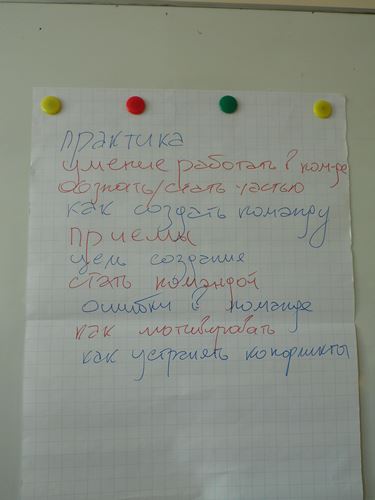 практика
умение работать в ком-де
познать/стать частью
как создать команду
приемы
цель создания
стать командой
ошибки в команде
как мотивировать
как устранять конфликты